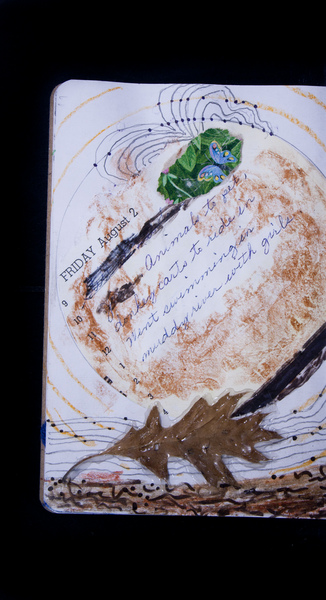 FRIDAY August 2
Animals to pet,
and carts to ride in
Went swimming in
muddy river with girls
9
10
11
12
1
2
3
4